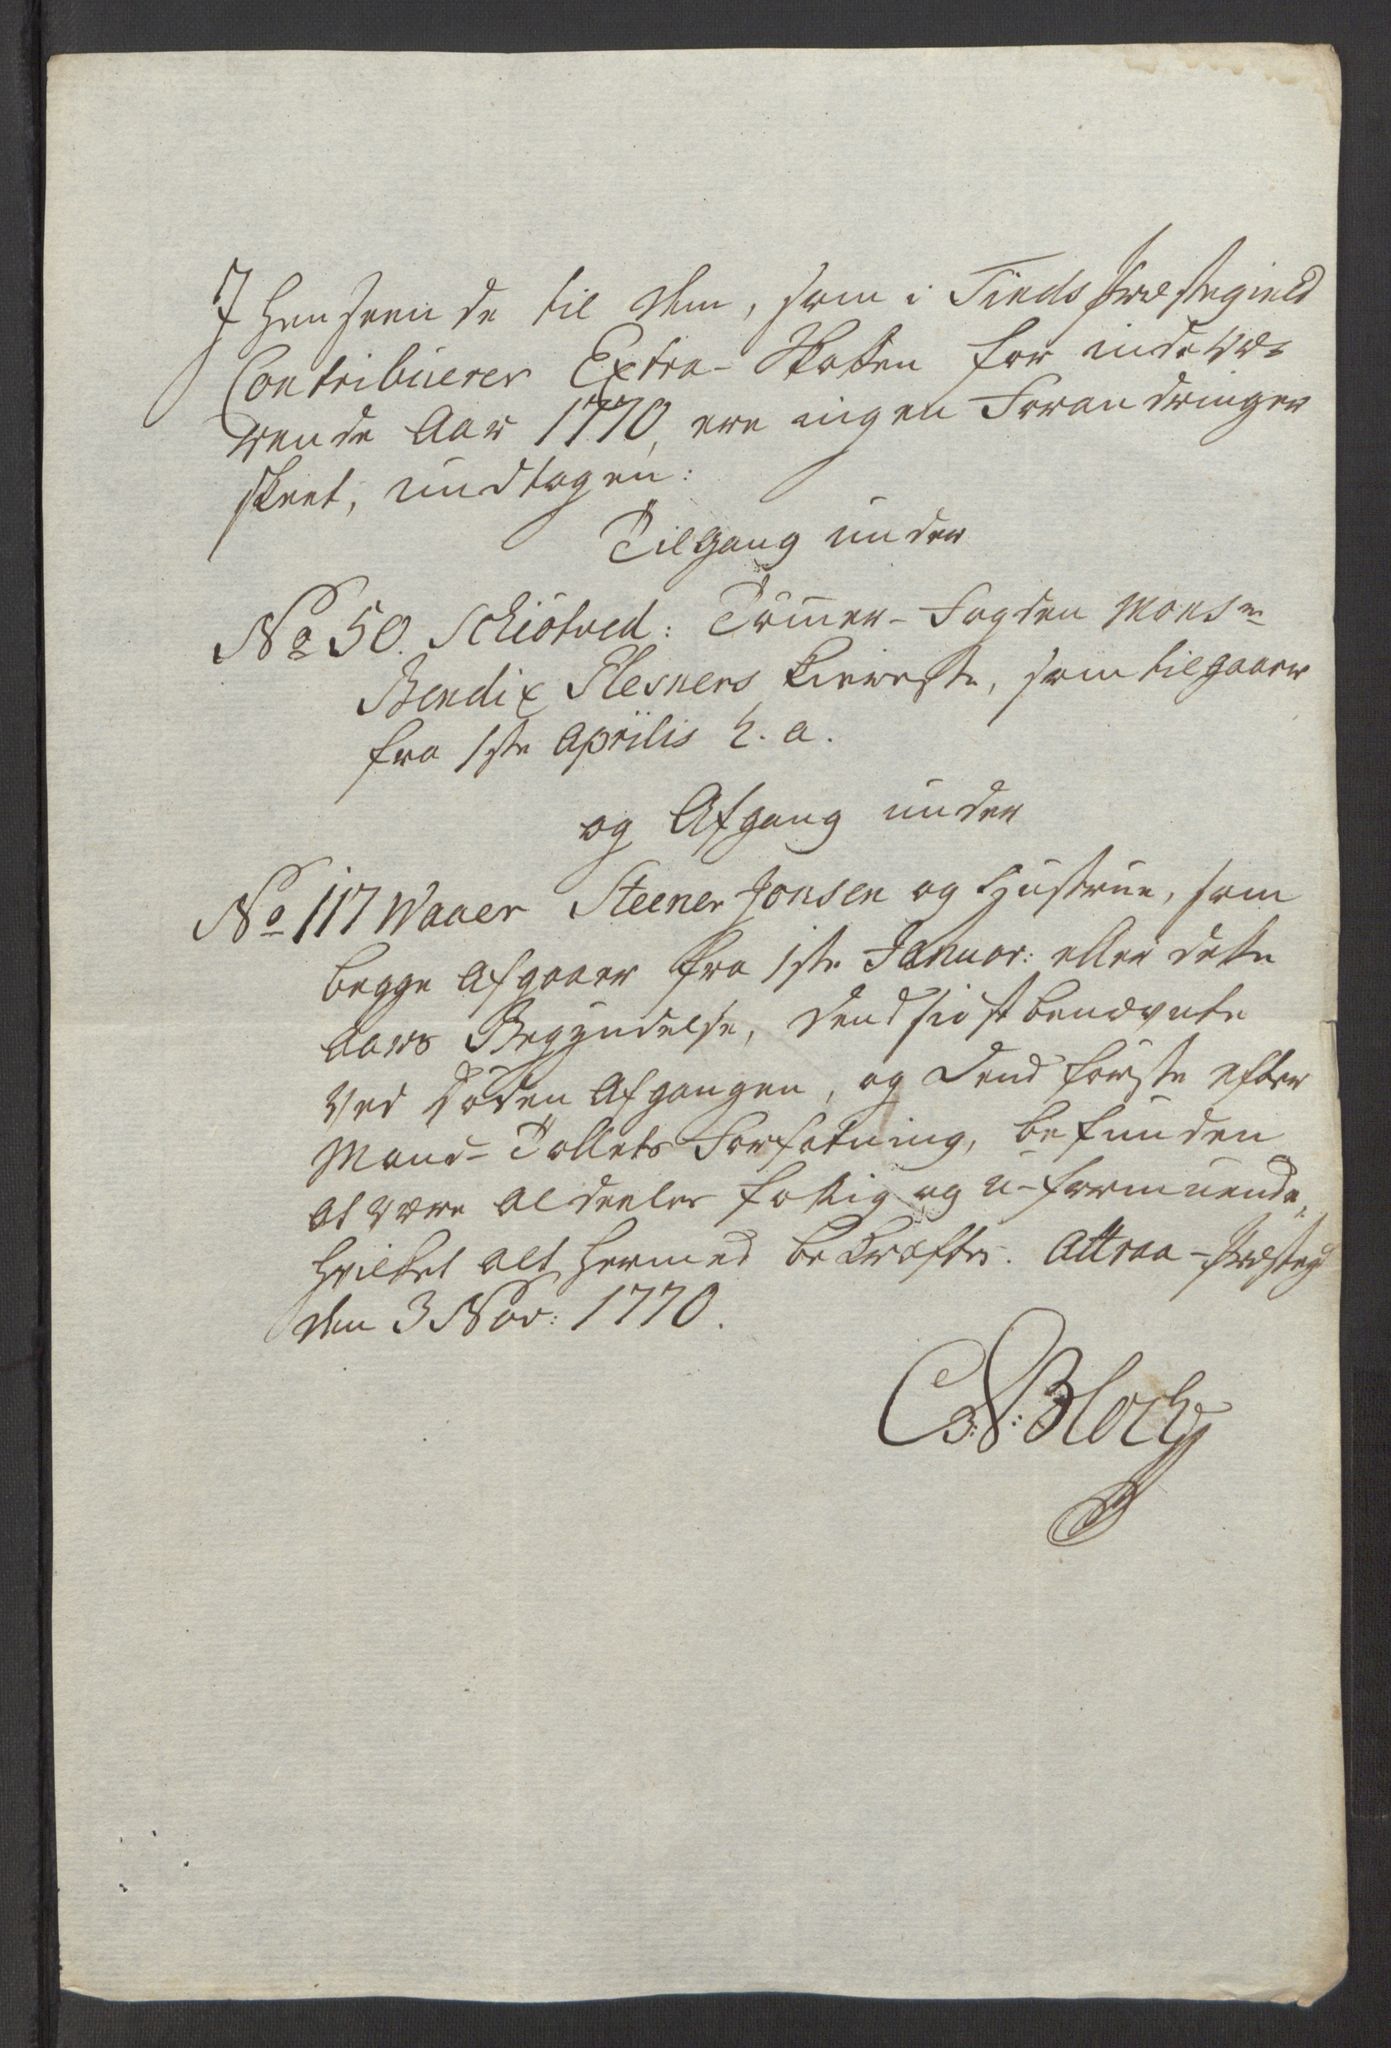 I Henseende til dem, som i Tinds Præstegield
Contribuerer Extra-Skatten for indevæ-
rende Aar 1770, ere ingen Forandringer
skeet, undtagen:
Tilgang under
No 50. Schiötved: Tömmer-Fogden Monsr
Bendix Elesners Kiereste, som tilgaaer
fra 1ste Aprilis h. a.
og Afgang under
No 117 Waaer Steener Jonsen og Hustrue, som
begge Afgaaer fra 1ste Januar: eller dette
Aars Begyndelse, dend sidst benævnte
ved Döden Afgangen, og dend förste efter
Mand-Tallets Forfatning, befunden
at være aldeeles fattig og u-formuende,
hvilket alt hermed bekræftes. Attraa-Præsteg:
den 3 Nov: 1770.
C: N: Bloch